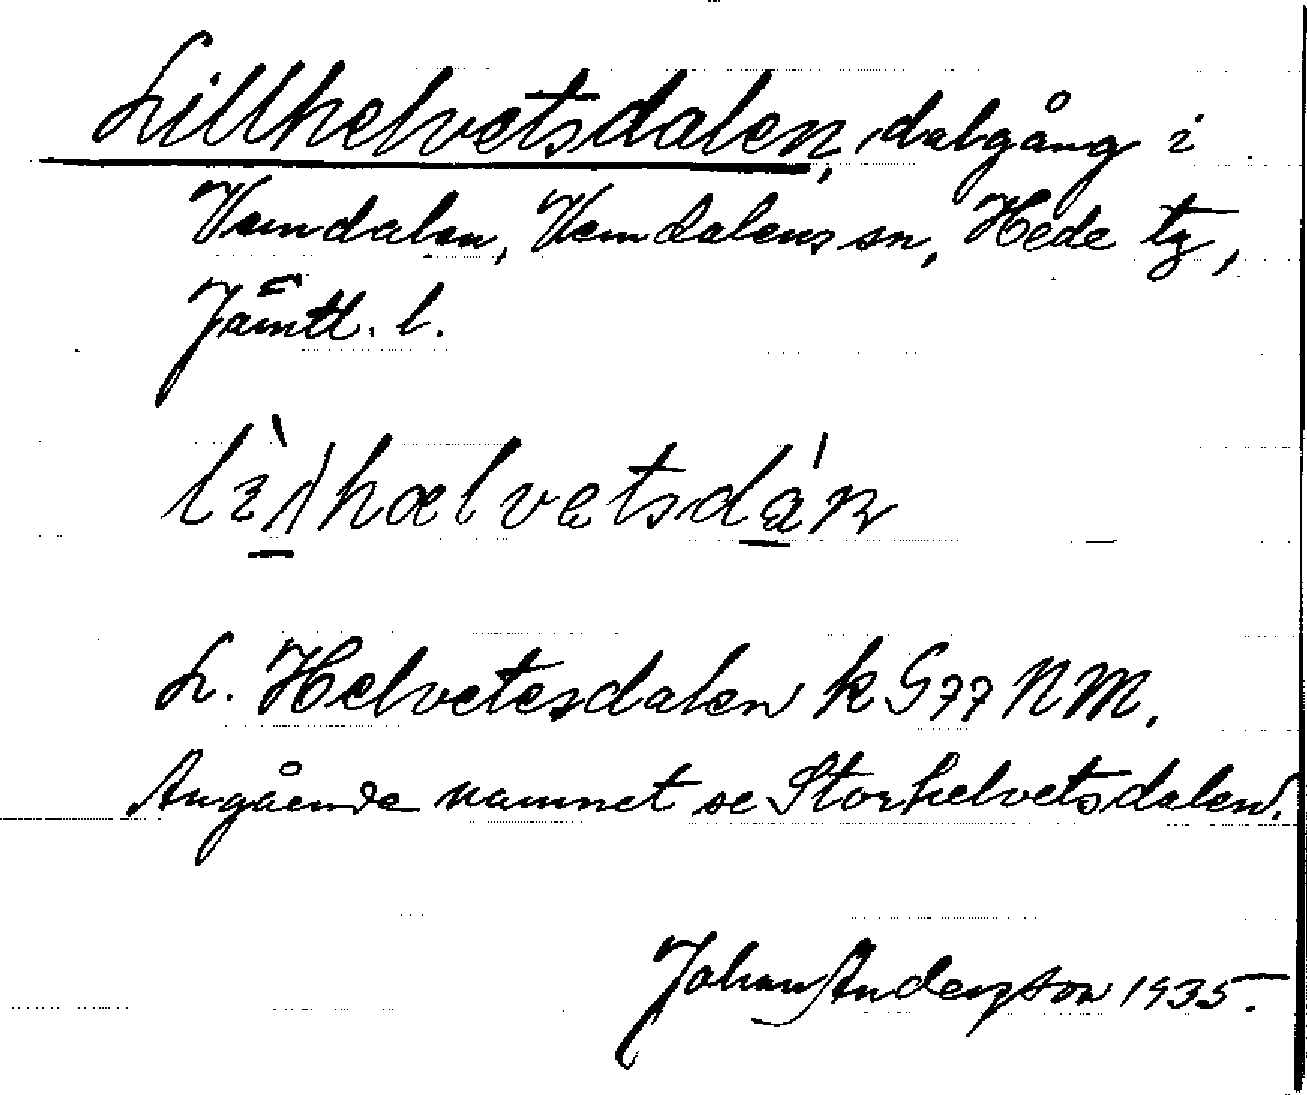 Lillhelvetsdalen, dalgång i
Vemdalen, Vemdalens sn, Hede tg,
Jämtl. l.
L. Helvetesdalen k G77 NM.
Angående namnet se Storhelvetsdalen.
Johan Anderzson 1935.